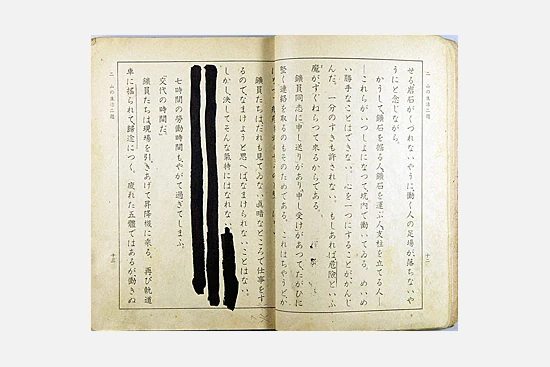 二 山の生活二題
十二
せる。岩石がくづれないやうに、働く人の足場が落ちないや
うにと念じながら。
かうして、鑛石を掘る人、鑛石を運ぶ人、支柱を立てる人
これらが、いつしよになつて坑内で働いてゐる。めいめ
い勝手なことはできない。心を一つにすることが、かんじ
んだ。一分のすきも許されない。もしあれば、危險といふ
魔が、すぐねらつて來るからである。
鑛員同志に申し送りがあり、申し受けがあつて、たがひに
堅く連絡を取るのも、そのためである。これは、ちやうどか
鑛員たちは、だれも見てゐない眞暗なところで仕事をす
るので、なまけようと思へば、なまけられないことはない。
しかし、決してそんな氣持にはなれない。
七時間の勞働時間も、やがて過ぎてしまふ。
「交代の時間だ。」
鑛員たちは、現場を引きあげて昇降機に來る。再び軌道
車に搖られて、歸途につく。疲れた五體ではあるが、働きぬ
二 山の生活二題
十三